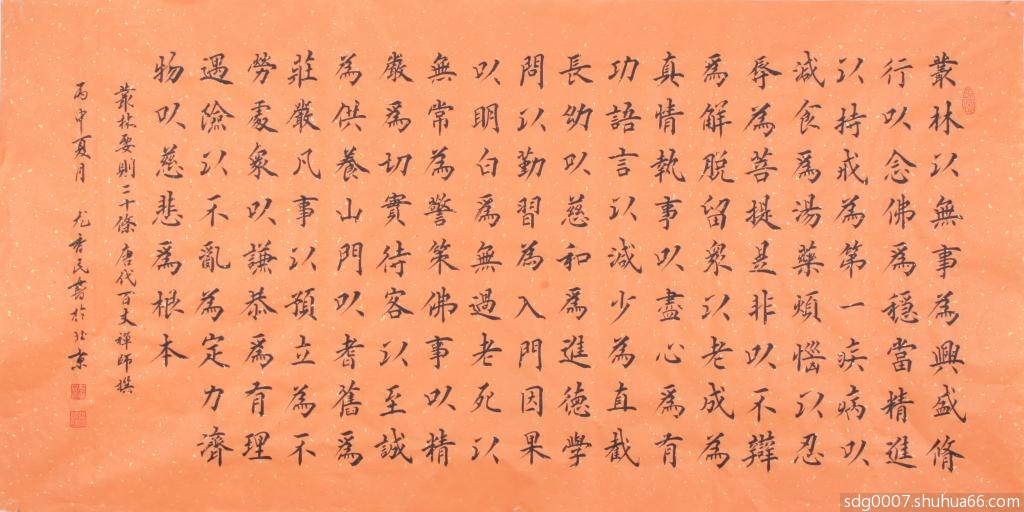 叢林以無事為興盛脩
行以念佛為穩當精進
以持戒為第一疾病以
減食為湯藥煩惱以忍
辱為菩提是非以不辯
為解脫留眾以老成為
真情執事以盡心為有
功語言以減少為直截
長幼以慈和為進德學
問以勤習為入門因果
以明白為無過老死以
無常為警策佛事以精
嚴為切實待客以至誠
為供養山門以耆舊為
莊嚴凡事以預立為不
勞處眾以謙恭為有理
遇險以不亂為定力濟
物以慈悲為根本
叢林要則二十條 唐代百丈禪師撰
丙申夏月 尤香民書於北京
sdg0007.shuhua66.com